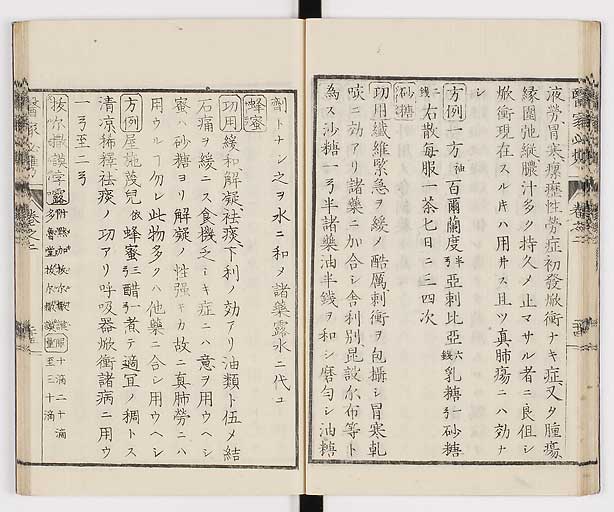 液勞冒寒瘰癧性勞症初發焮衝ナキ症又タ腫瘍
緣圍弛縱膿汁多ク持久〆止マサル者ニ良但シ
焮衝現在スルキハ用ヰス且ツ真肺瘍ニハ効ナ
シ
方例 一方 百爾蘭度 半 亞刺比亞 六 乳糖 砂糖
二 右散每服一茶匕日ニ三四次
砂糖
功用 纖維緊急ヲ緩〆酷厲刺衝ヲ包攝シ冒寒軋
咳ニ効アリ諸藥ニ加合シ舍利別昆設尔布等ト
為ス砂糖一弓半諸藥油半錢ヲ和シ磨勻シ油糖
劑トナシ之ヲ水ニ和〆諸藥露水ニ代ユ
蜂蜜
功用 緩和解凝祛痰下利ノ効アリ油類ト伍〆結
石痛ヲ緩ニス食機乏シキ症ニハ意ヲ用ウヘシ
蜜ハ砂糖ヨリ解凝ノ性强キカ故ニ真肺勞ニハ
用ウルヿ勿レ此物多クハ他藥ニ合シ用ウヘシ
方例 屋施茂兒 依 蜂蜜 三弓 醋 一弓 煮テ適冝ノ稠トス
清涼稀釋祛痰ノ功アリ呼吸器焮衝諸病ニ用ウ
一弓至二弓
拔尔撒謨孛露 十滴二十滴
多魯拔尔撒謨 至三十滴